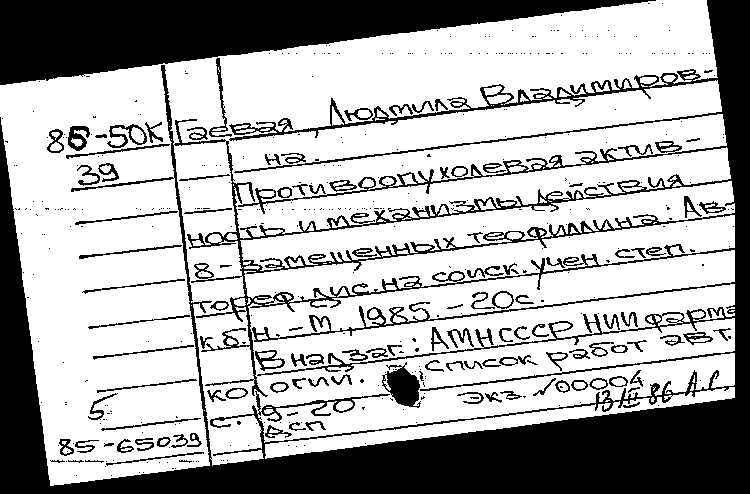 85-50К Гаевая, Людмила Владимиров-
39 на.
Противоопухолевая актив-
ность и механизмы действия
8-замещенных теофиллина: Ав-
тореф. дис. на соиск. учен. степ.
к.б.н. -М., 1985. -20с.
В надзаг.: АМНСССР, НИИ фарма
кологии. Список работ авт.
5 с. 19-20. Экз. √00004
85-65039 дсп 13 III 86 Л.Г.